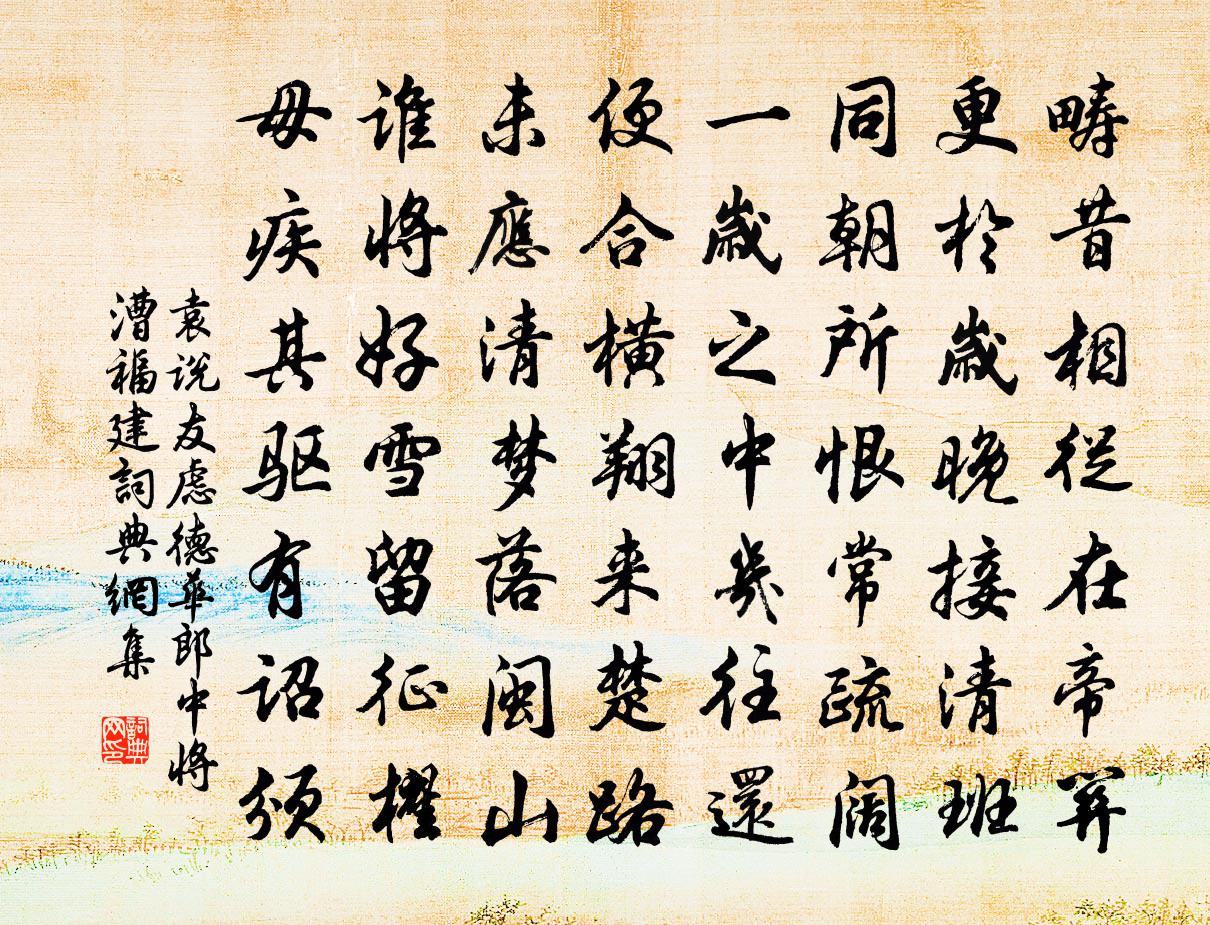 疇昔相從在帝關
更於歲晚接清班
同朝所恨常疏闊
一歲之中幾往還
便合橫翔来楚路
未應清梦落闽山
誰將好雪留征櫂
毋疾其驱有诏颁
袁说友虑德華郎中將
漕福建詞典網集
詞典网印